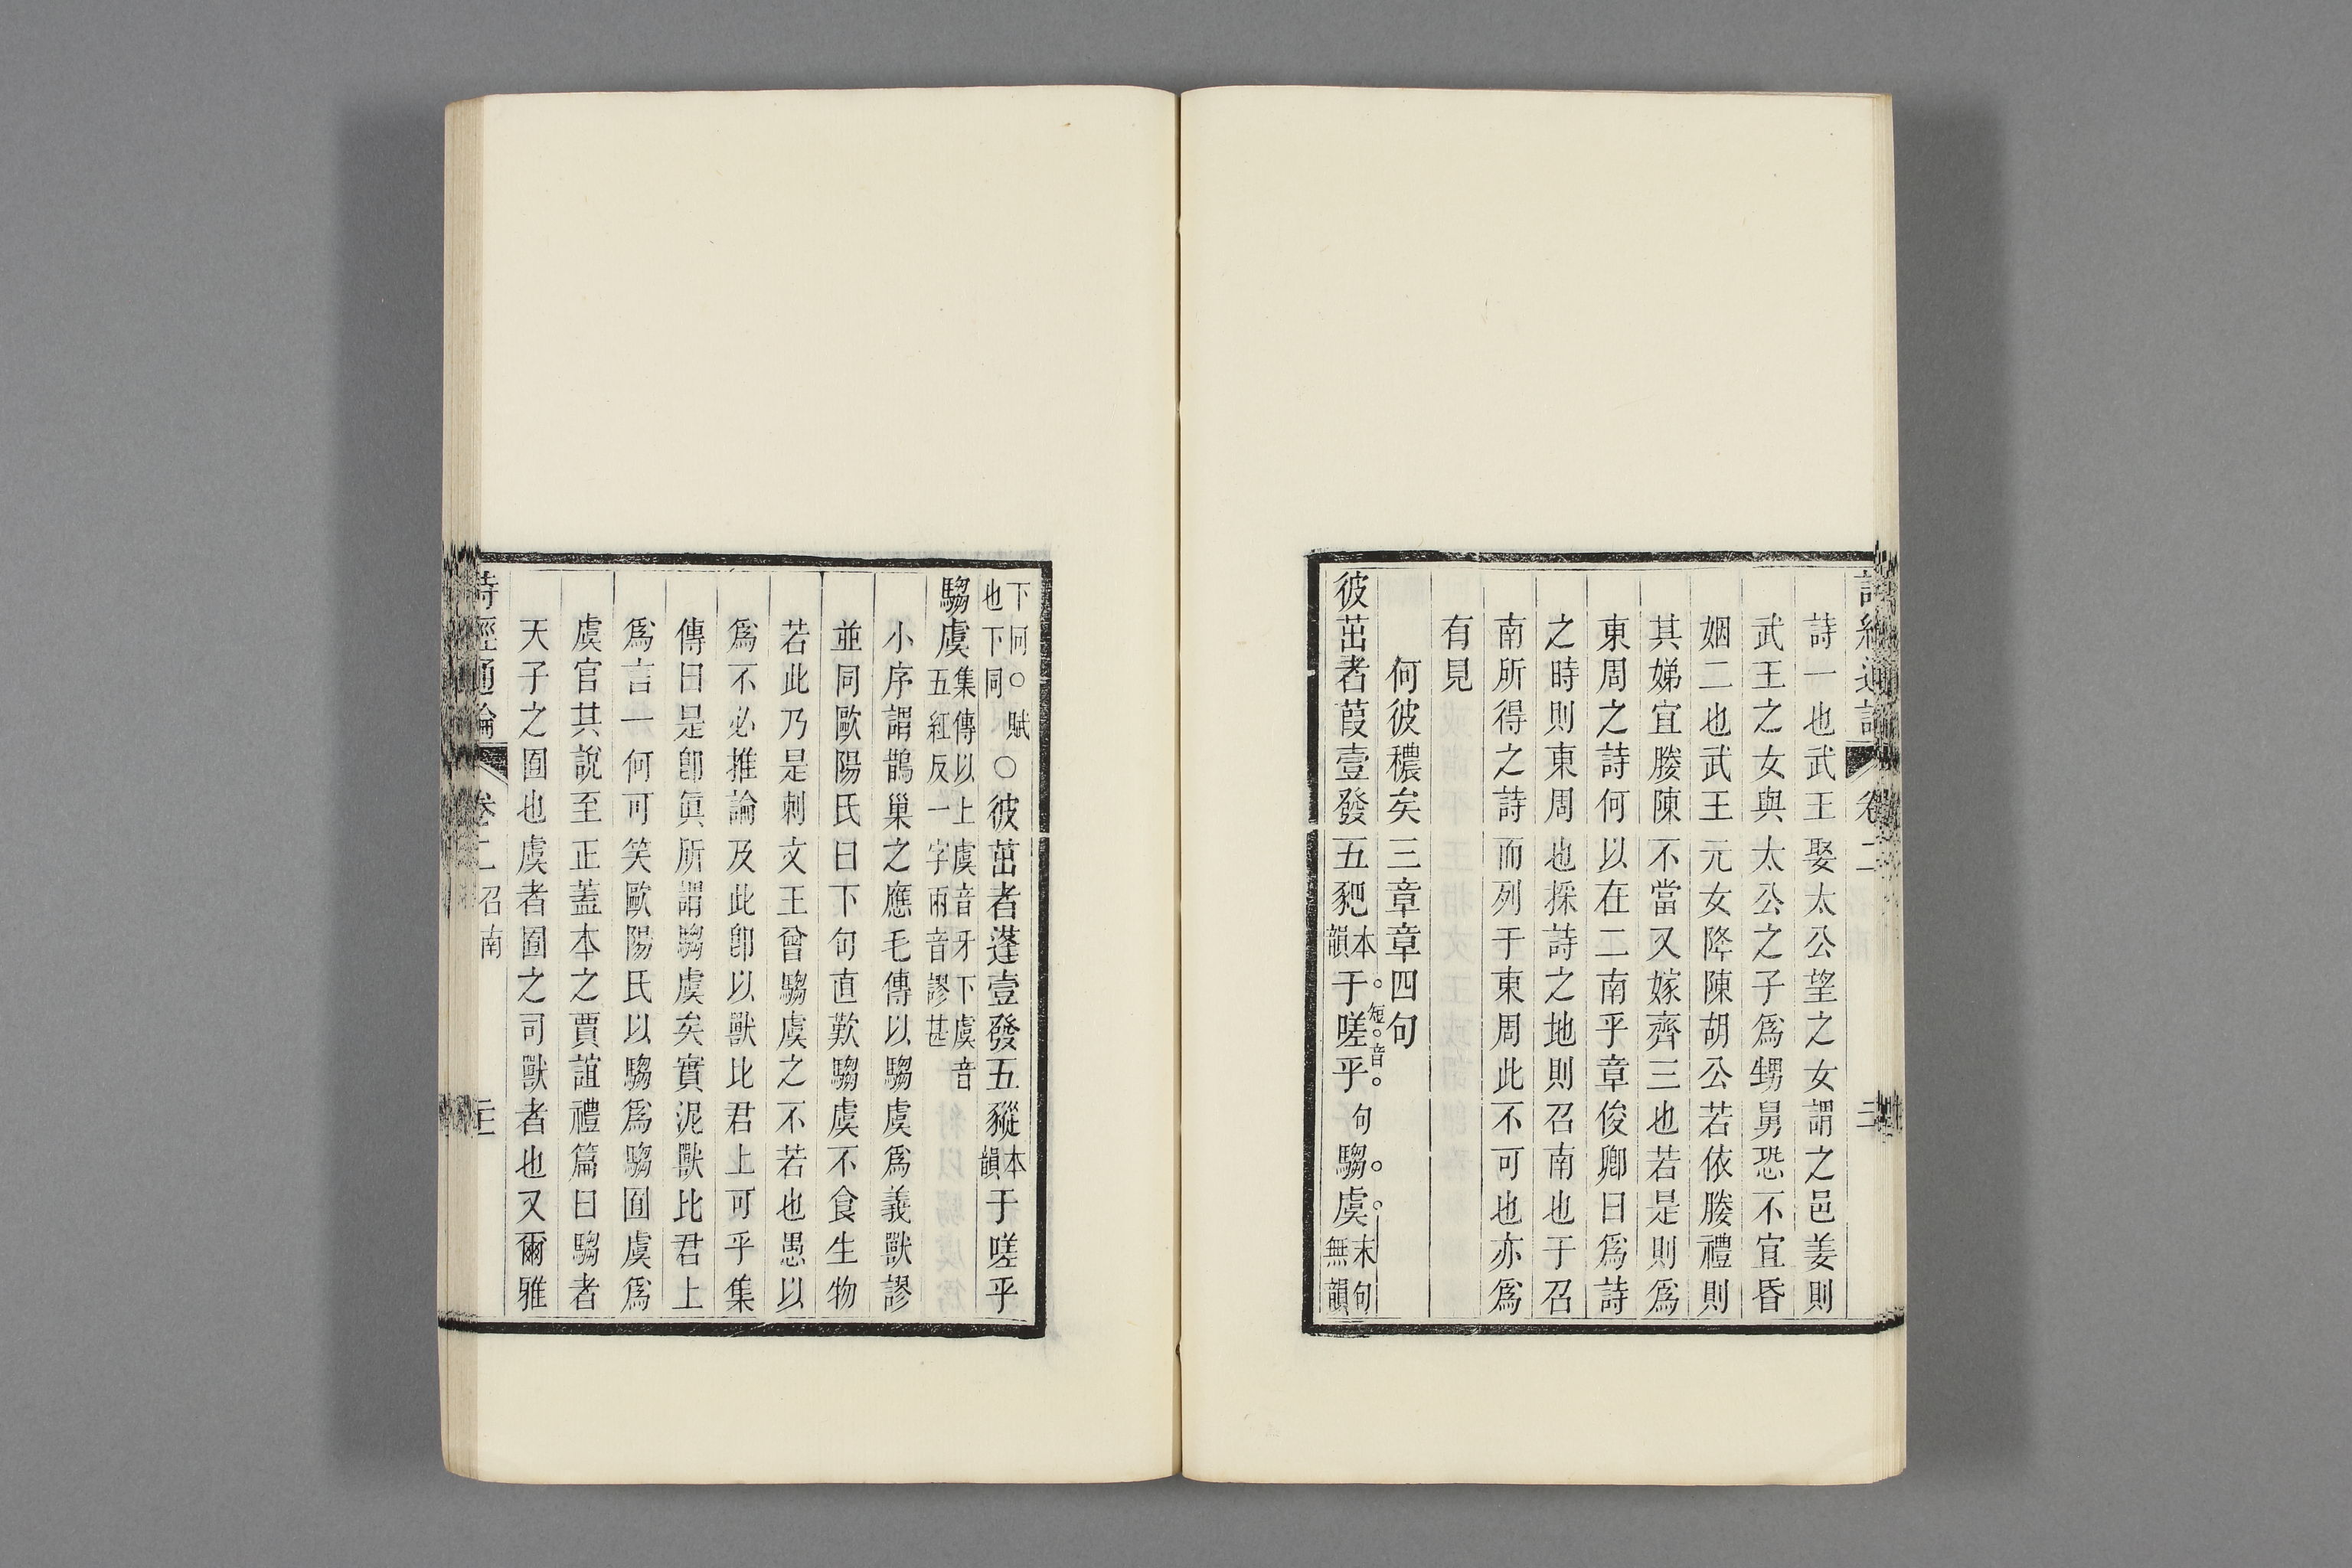 詩經通論 卷二
詩一也武王娶太公望之女謂之邑姜則
武王之女與太公之子爲甥舅恐不宜昏
姻二也武王元女降陳胡公若依媵禮則
其娣宜媵陳不當又嫁齊三也若是則爲
東周之詩何以在二南乎章俊卿曰爲詩
之時則東周也採詩之地則召南也于召
南所得之詩而列于東周此不可也亦爲
有見
何彼穠矣三章章四句
彼茁者葭壹發五豝本韻于嗟乎句騶虞末句無韻
短音
下何○賦也下同○彼茁者蓬壹發五豵本韻于嗟乎
騶虞集傳以上虞音牙下虞音五紅反一字兩音謬甚
小序謂鵲巢之應毛傳以騶虞爲義獸謬
並同歐陽氏曰下句直歎騶虞不食生物
若此乃是刺文王曾騶虞之不若也愚以
爲不必推論及此卽以獸比君上可乎集
傳曰是卽眞所謂騶虞矣實泥獸比君上
爲言一何可笑歐陽氏以騶爲騶囿虞爲
虞官其說至正蓋本之賈誼禮篇曰騶者
天子之囿也虞者囿之司獸者也又爾雅
詩經通論 卷二召南